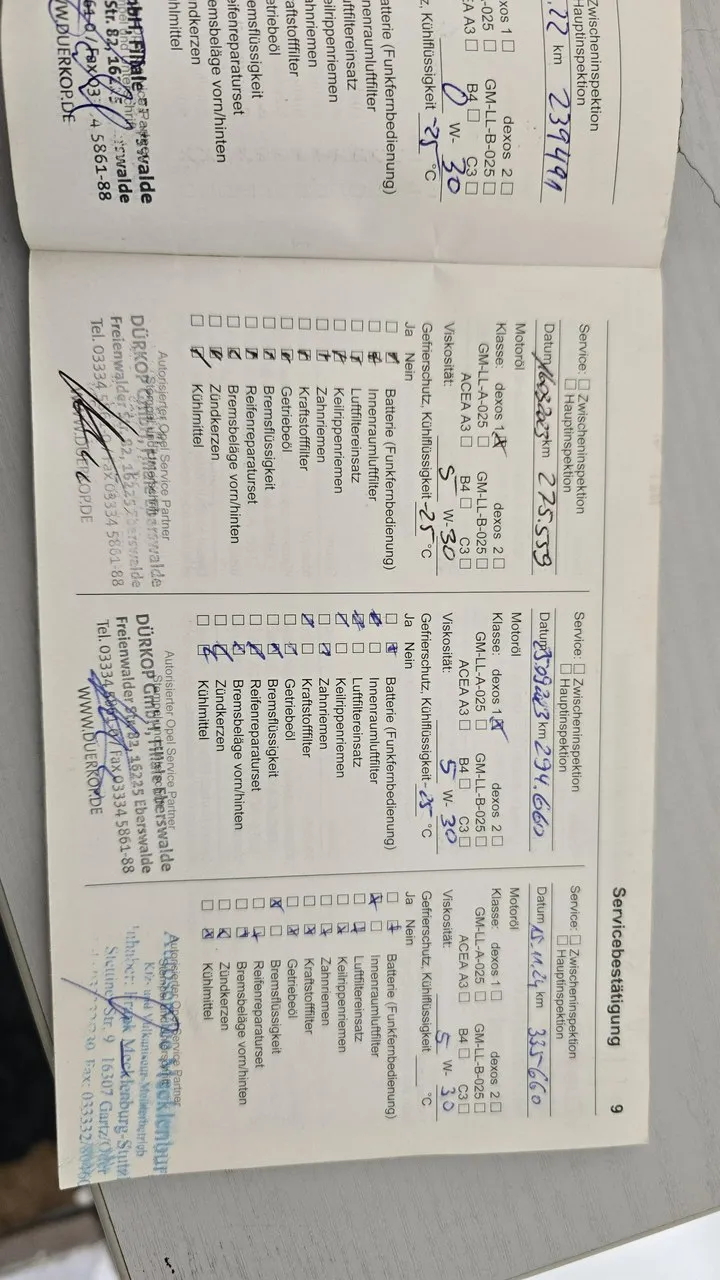 Zwischeninspektion
Hauptinspektion
.22 km 239491
dexos 2
GM-LL-B-025
B4 C3
0 W- 30
Kühlflüssigkeit -25 °C
Batterie (Funkfernbedienung)
nenraumluftfilter
uftfiltereinsatz
eilrippenriemen
ahnriemen
raftstofffilter
etriebeöl
emsflüssigkeit
eifenreparaturset
emsbeläge vorn/hinten
ndkerzen
ühlmittel
5861-88
WW.DUERKOP.DE
Servicebestätigung 9
Service: Zwischeninspektion
Hauptinspektion
Datum km 275.559
Motoröl
Klasse: dexos 1 dexos 2
GM-LL-A-025 GM-LL-B-025
ACEA A3 B4 C3
Viskosität: 5 W- 30
Gefrierschutz, Kühlflüssigkeit -25 °C
Ja Nein
Batterie (Funkfernbedienung)
Innenraumluftfilter
Luftfiltereinsatz
Keilrippenriemen
Zahnriemen
Kraftstofffilter
Getriebeöl
Bremsflüssigkeit
Reifenreparaturset
Bremsbeläge vorn/hinten
Zündkerzen
Kühlmittel
Autorisierter Opel Service Partner
DÜRKOP GmbH, Filiale Eberswalde
Freienwalder Str. 82, 16225 Eberswalde
Tel. 03334 Fax 03334 5861-88
WWW.DUERKOP.DE
Service: Zwischeninspektion
Hauptinspektion
Datum km 294.660
Motoröl
Klasse: dexos 1 dexos 2
GM-LL-A-025 GM-LL-B-025
ACEA A3 B4 C3
Viskosität: 5 W- 30
Gefrierschutz, Kühlflüssigkeit -25 °C
Ja Nein
Batterie (Funkfernbedienung)
Innenraumluftfilter
Luftfiltereinsatz
Keilrippenriemen
Zahnriemen
Kraftstofffilter
Getriebeöl
Bremsflüssigkeit
Reifenreparaturset
Bremsbeläge vorn/hinten
Zündkerzen
Kühlmittel
Autorisierter Opel Service Partner
DÜRKOP GmbH, Filiale Eberswalde
Freienwalder Str. 82, 16225 Eberswalde
Tel. 03334 Fax 03334 5861-88
WWW.DUERKOP.DE
Service: Zwischeninspektion
Hauptinspektion
Datum 15.11.24 km 335660
Motoröl
Klasse: dexos 1 dexos 2
GM-LL-A-025 GM-LL-B-025
ACEA A3 B4 C3
Viskosität: 5 W- 30
Gefrierschutz, Kühlflüssigkeit °C
Ja Nein
Batterie (Funkfernbedienung)
Innenraumluftfilter
Luftfiltereinsatz
Keilrippenriemen
Zahnriemen
Kraftstofffilter
Getriebeöl
Bremsflüssigkeit
Reifenreparaturset
Bremsbeläge vorn/hinten
Zündkerzen
Kühlmittel
Inhaber: Frank Mecklenburg-Stuth
Stettiner Str. 9 16307 Gartz/Oder
Fax: 033332/